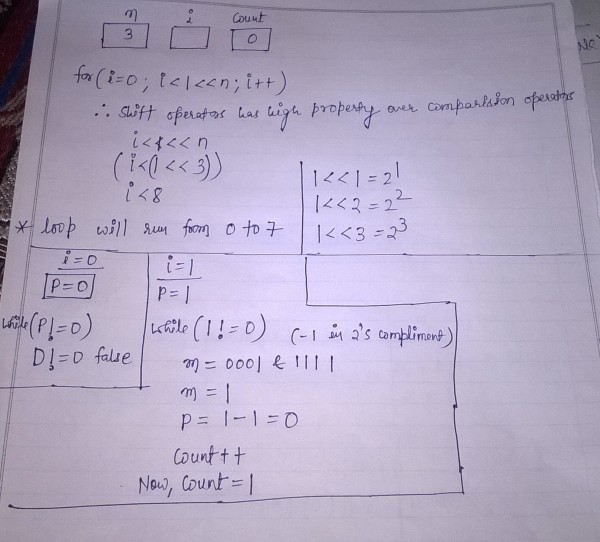 n i Count
3 0
for (i=0 ; i<1<<n ; i++)
∴ Shift operators has high property over comparision operators
i<1<<n
(i<(1 << 3))
i<8
1<<1 = 2^1
1<<2 = 2^2
1<<3 = 2^3
* loop will run from 0 to 7
i=0
P=0
while(P!=0)
0!=0 false
i=1
P=1
while (1!=0) (-1 in 2's compliment)
m = 0001 & 1111
m = 1
P = 1-1=0
Count++
Now, Count=1